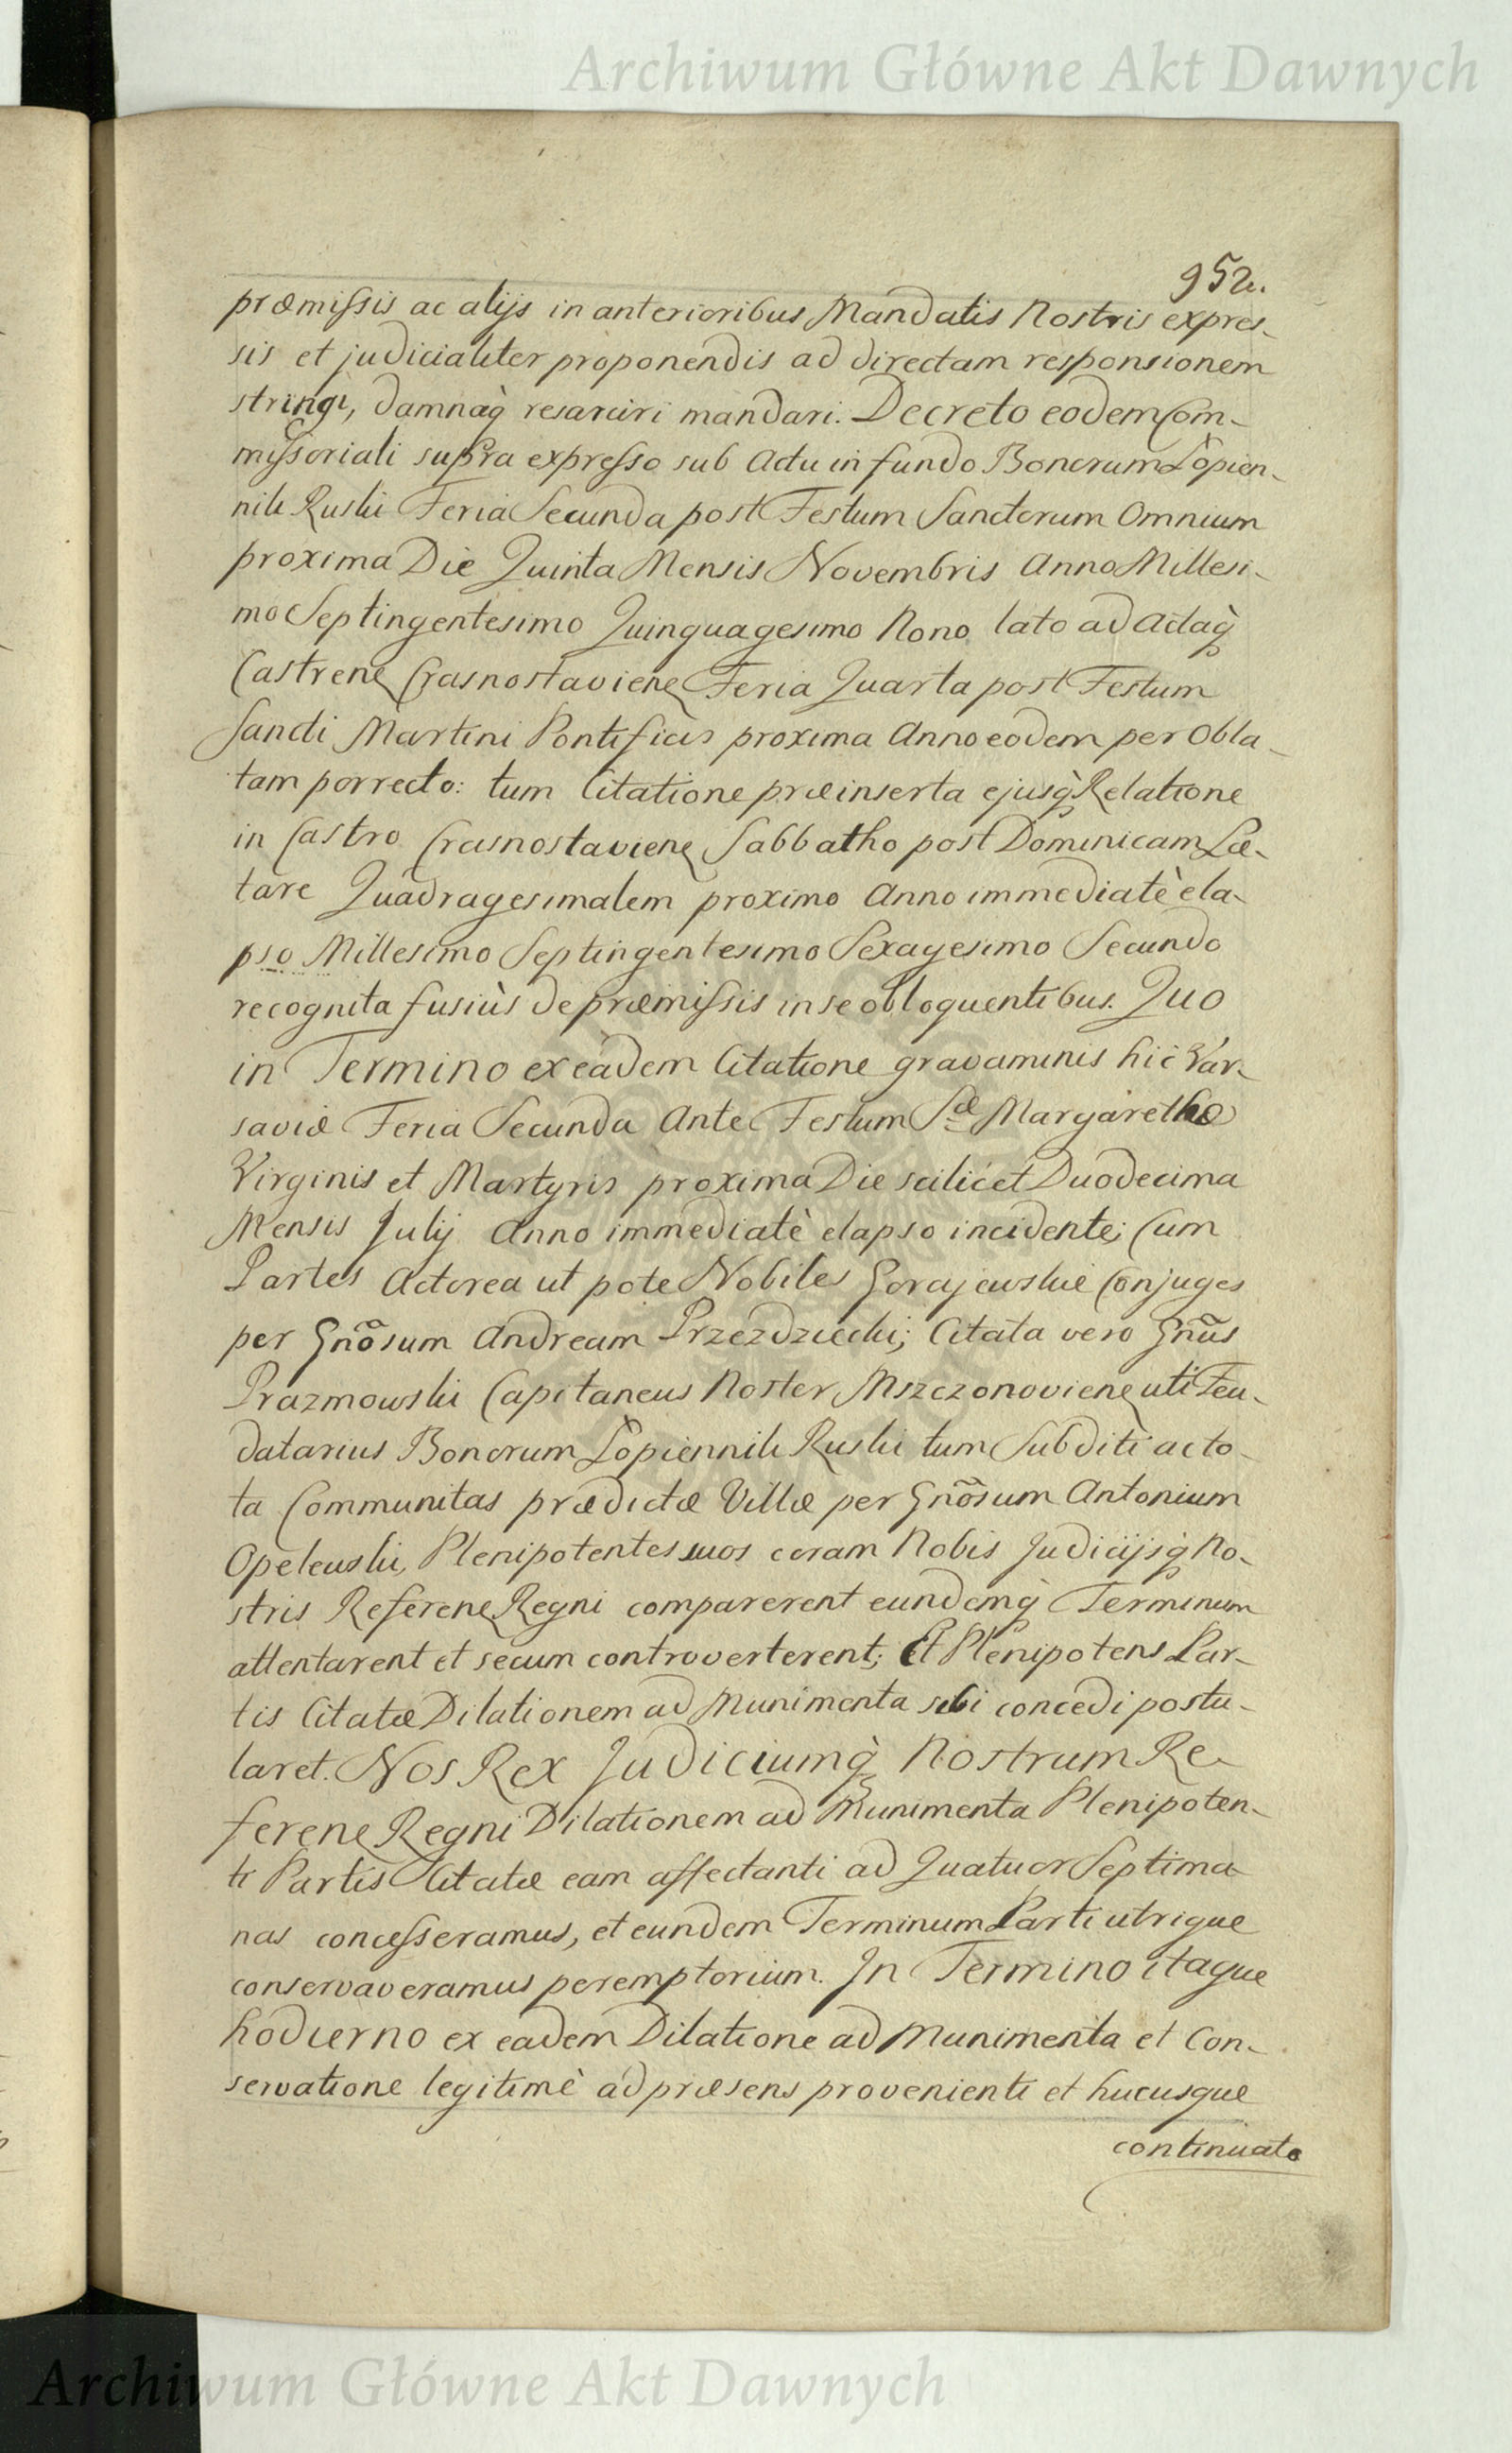 Archiwum Główne Akt Dawnych
952.
præmissis ac alijs in anterioribus Mandatis Nostris expres-
sis et judicialiter proponendis ad directam responsionem
stringi, damnaq̀ resarciri mandari. Decreto eodem Com-
missoriali supra expresso sub Actu in fundo Bonorum Łopien-
nik Ruski Feria Secunda post Festum Sanctorum Omnium
proxima Die Quinta Mensis Novembris Anno Millesi-
mo Septingentesimo Quinquagesimo Nono lato ad Actaq̀
Castrene Crasnostaviene Feria Quarta post Festum
Sancti Martini Pontificis proxima Anno eodem per Obla-
tam porrecto: tum Citatione præinserta ejusq̀ Relatione
in Castro Crasnostaviene Sabbatho post Dominicam Læ-
tare Quadragesimalem proximo Anno immediatè ela-
pso Millesimo Septingentesimo Sexagesimo Secundo
recognita fusiùs de præmissis in se obloquentibus. Quo
in Termino ex eadem Citatione gravaminis hic Var-
saviæ Feria Secunda Ante Festum Sæ Margarethæ
Virginis et Martyris proxima Die scilicet Duodecima
Mensis Julij Anno immediatè elapso incidente; Cum
Partes Actorea ut pote Nobiles Gorajewskie Conjuges
per Gnõsum Andream Przezdziecki; Citata vero Gnũs
Prazmowski Capitaneus Noster Mszczonoviene uti Feu-
datarius Bonorum Łopiennik Ruski tum Subditi ac to-
ta Communitas prædictæ Villæ per Gnõsum Antonium
Opelewski, Plenipotentes suos coram Nobis Judicijsq̀ No-
stris Referene Regni comparerent eundemq̀ Terminum
attentarent et secum controverterent; Et Plenipotens Par-
tis Citatæ Dilationem ad Munimenta sibi concedi postu-
laret. Nos Rex Judiciumq̀ Nostrum Re-
ferene Regni Dilationem ad Munimenta Plenipoten-
ti Partis Citatæ eam affectanti ad Quatuor Septima-
nas concesseramus, et eundem Terminum Parti utrique
conservaveramus peremptorium. In Termino itaque
hodierno ex eadem Dilatione ad Munimenta et Con-
servatione legitimè ad præsens provenienti et hucusque
continuato
Archiwum Główne Akt Dawnych